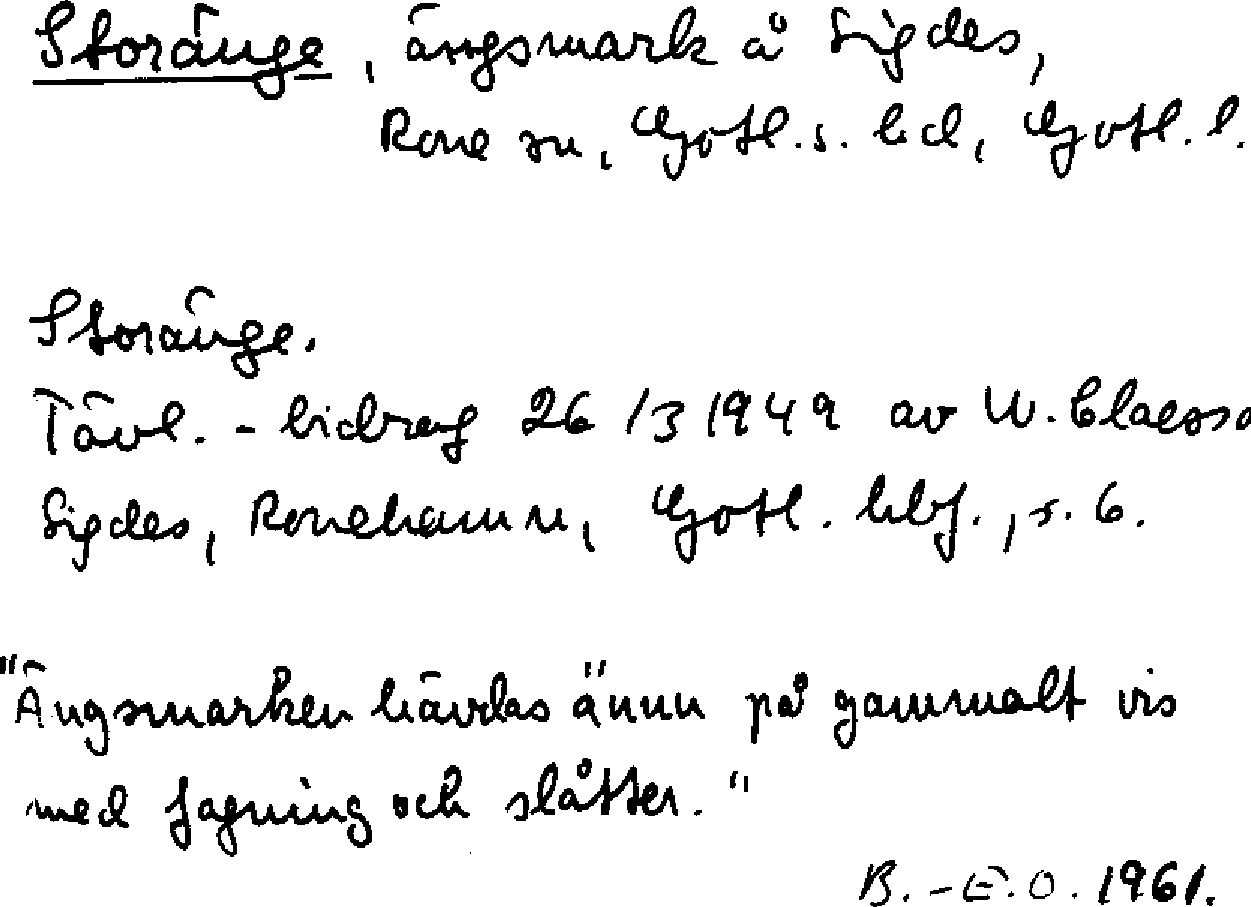 Storänge, ängsmark å Sigdes,
Rone sn, Gotl. s. hd, Gotl. l.
Storänge.
Tävl.-bidrag 26/3 1949 av W. Claesso
Sigdes, Ronehamn, Gotl. hbf., s. 6.
"Ängsmarken hävdas ännu på gammalt vis
med fagning och slåtter."
B.-E.O. 1961.